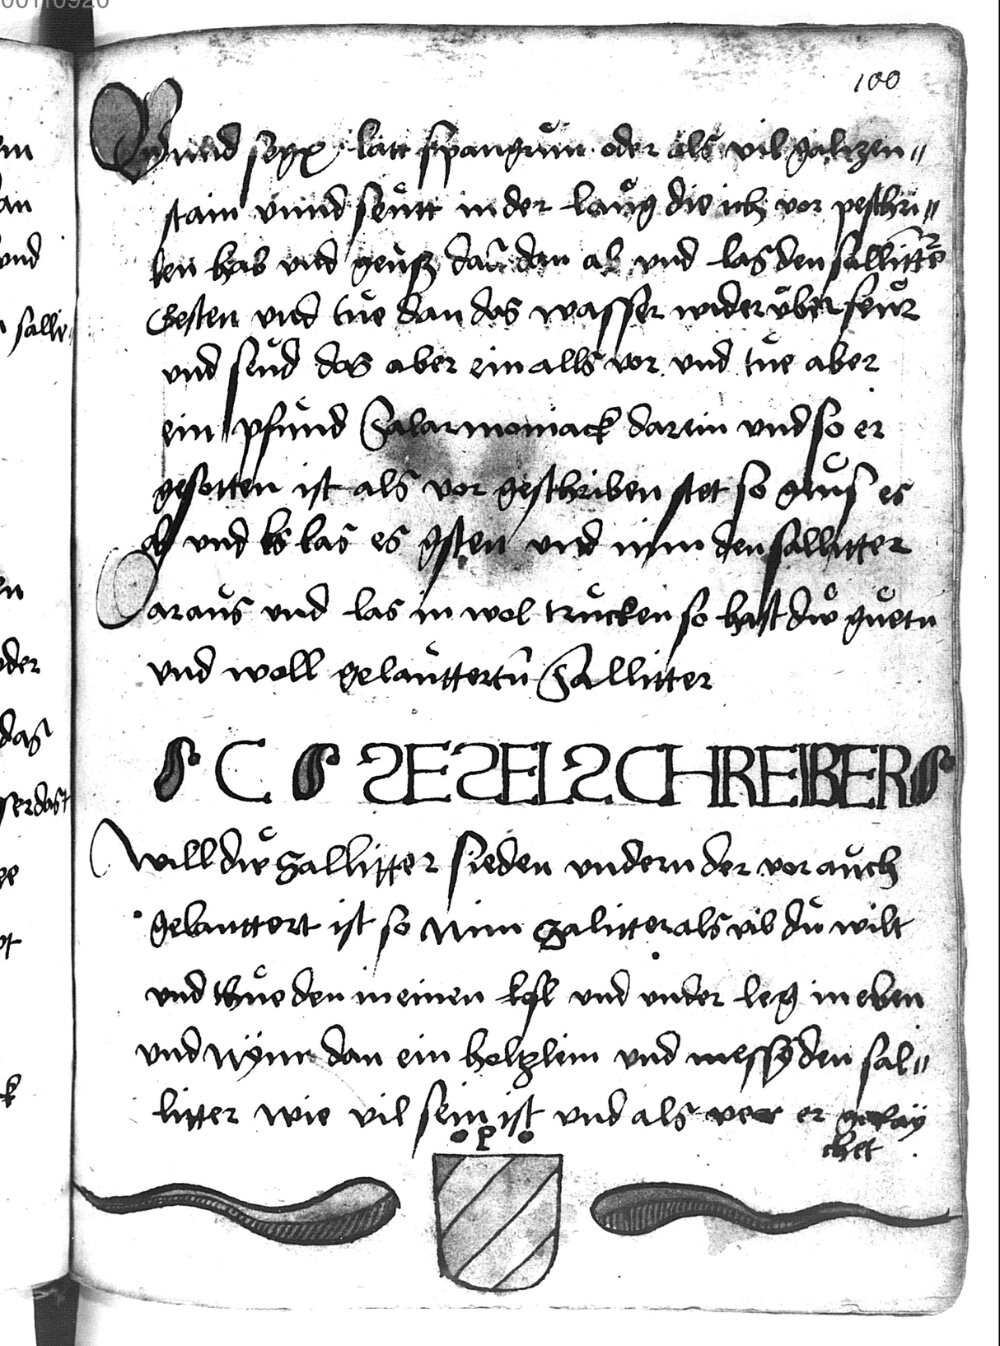 100
Vnnd sexx latt spangruen oder als vil galizen=
stain vnnd seutt in der laug die ich vor peschri=
ben hab vnd geuß dan dan ab vnd las den sallitter
Gesten vnd tue dan das wasser wider über feur
vnd seud das aber ein alls vor vnd tue aber
ein pfund Salarmoniack darein vnd so er
gesotten ist als vor geschriben stet so geus es
ab vnd ls las es gsten vnd nim den sallitter
Daraus vnd las in wol trucken so hast dw guetn
vnd woll gelauttertn Sallitter
C SESELSCHREIBER
Will dw Sallitter sieden vndern der vor auch
gelauttert ist so Nim Salitter als vil du wilt
vnd thue den in einen ksl vnd vnder leg in eben
vnd Nymm dan ein holtzlein vnd mess den sal=
litter wie vil sein ist vnd als ver er geray
chet
P
salli
das
k